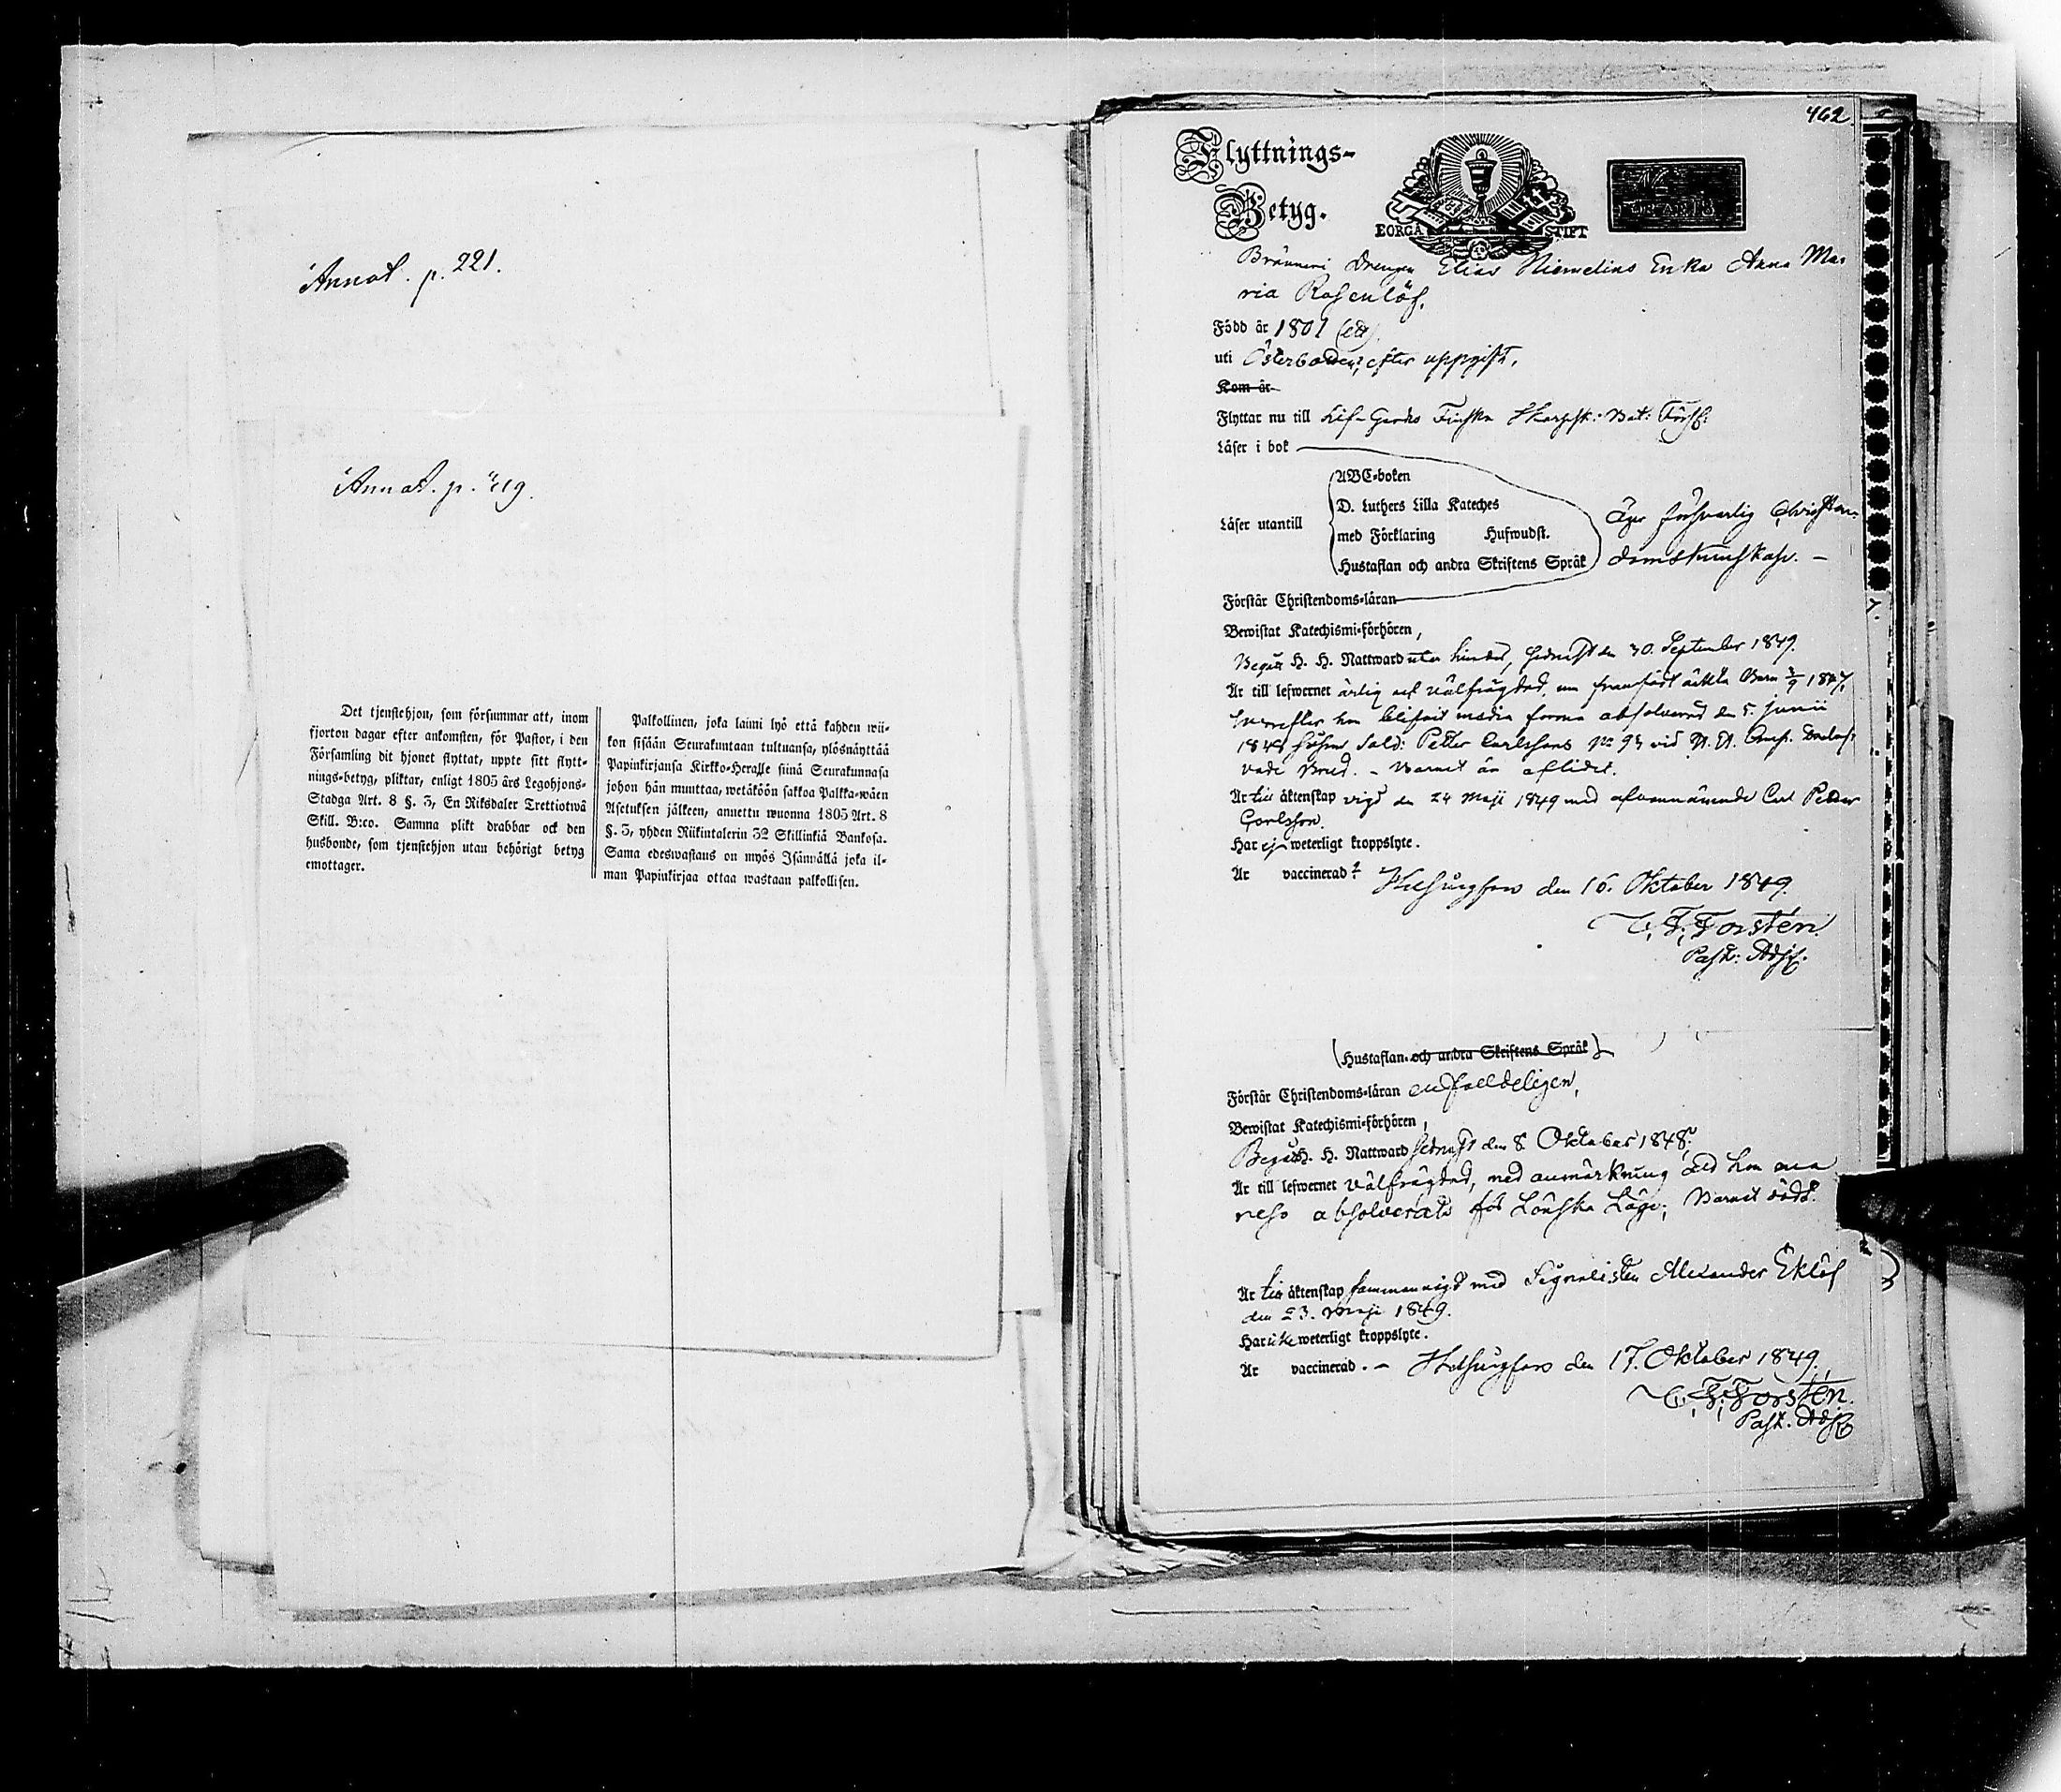 Annot. p. 221.
Annot. p. 219.
Det tjenstehjon, som försummar att, inom
fjorton dagar efter ankomsten, för Pastor, i den
Församling dit hjonet flyttat, uppte sitt flytt-
nings-betyg, pliktar, enligt 1805 års Legohjons-
Stadga Art. 8 §. 3, En Riksdaler Trettiotwå
Skill. B:co. Samma plikt drabbar ock den
husbonde, som tjenstehjon utan behörigt betyg
emottager.
Palkollinen, joka laimi lyö että kahden wii-
kon sisään Seurakuntaan tultuansa, ylösnäyttää
Papinkirjansa Kirkko-Heralle siinä Seurakunnasa
johon hän muuttaa, wetäköön sakkoa Palkka-wäen
Asetuksen jälkeen, annettu wuonna 1805 Art. 8
§. 3, yhden Riikintalerin 32 Skillinkiä Bankosa.
Sama edeswastaus on myös Isännällä joka il-
man Papinkirjaa ottaa wastaan palkollisen.
462.
Flyttnings-
Betyg.
BORGÅ STIFT
Bränneri Drengen Elias Niemelins Enka Anna Ma-
ria Rosenlöf.
Född år 1801 (ett)
uti Österbotten, efter uppgift.
Kom år
Flyttar nu till Lif-Gardes Finska Skarpsk: Bat: Förs:
Läser i bok
ABC-boken
D. Luthers Lilla Kateches
Läser utantill
med Förklaring Hufwudst.
Hustaflan och andra Skriftens Språk
Äger försvarlig Christen-
domskunskap. –
Förstår Christendoms-läran
Bewistat Katechismi-förhören,
Begått H. H. Nattward utan hinder, sednast den 30. September 1849.
Är till lefwernet ärlig och välfrägdad, en framfödt oäkta Barn 3/9 1847,
hvarefter hon blifvit media forma absolverad den 5. Junii
1848, såsom Sold: Petter Carlssons No 93 vid
vade Brud. – Barnet är aflidet.
Är till äktenskap vigd den 24 Maji 1849 med ofvannämnde Carl Petter
Carlsson.
Har ej weterligt kroppslyte.
Är vaccinerad? Helsingfors den 16. Oktober 1849.
C. F. Forstén
Past: Adj.
(Hustaflan och andra Skriftens Språk)
Förstår Christendoms-läran enfaldeligen,
Bewistat Katechismi-förhören,
Begått H. H. Nattward sednast den 8 Oktober 1848.
Är till lefwernet välfrägdad, med anmärkning att hon
absolverats för Lönska Läge; Barnet dödt.
Är till äktenskap sammanvigd med Signalisten Alexander Eklöf
den 23. Maji 1849.
Har icke weterligt kroppslyte.
Är vaccinerad. – Helsingfors den 17. Oktober 1849.
C. F. Forstén.
Past. Adj.